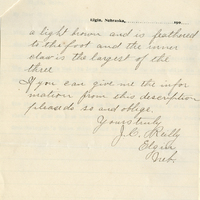 Elgin, Nebraska, 190
a light brown and is feathered
to the foot and the inner
claw is the largest of the
three
If you can give me the infor
mation from this description
please do so and oblige.
Yours truly
J. C. Reilly
Elgin
Nebr